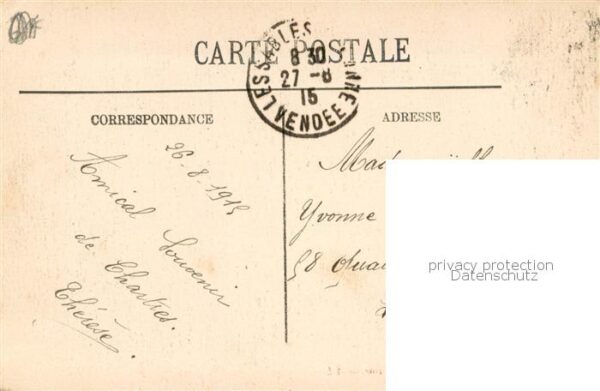 CARTE POSTALE
LES SABLES
8 30
27 -8
15
VENDEE
CORRESPONDANCE
ADRESSE
26-8-1915
Amical Souvenir
de Chartres.
Thérèse.
Yvonne
58 Quai
privacy protection
Datenschutz